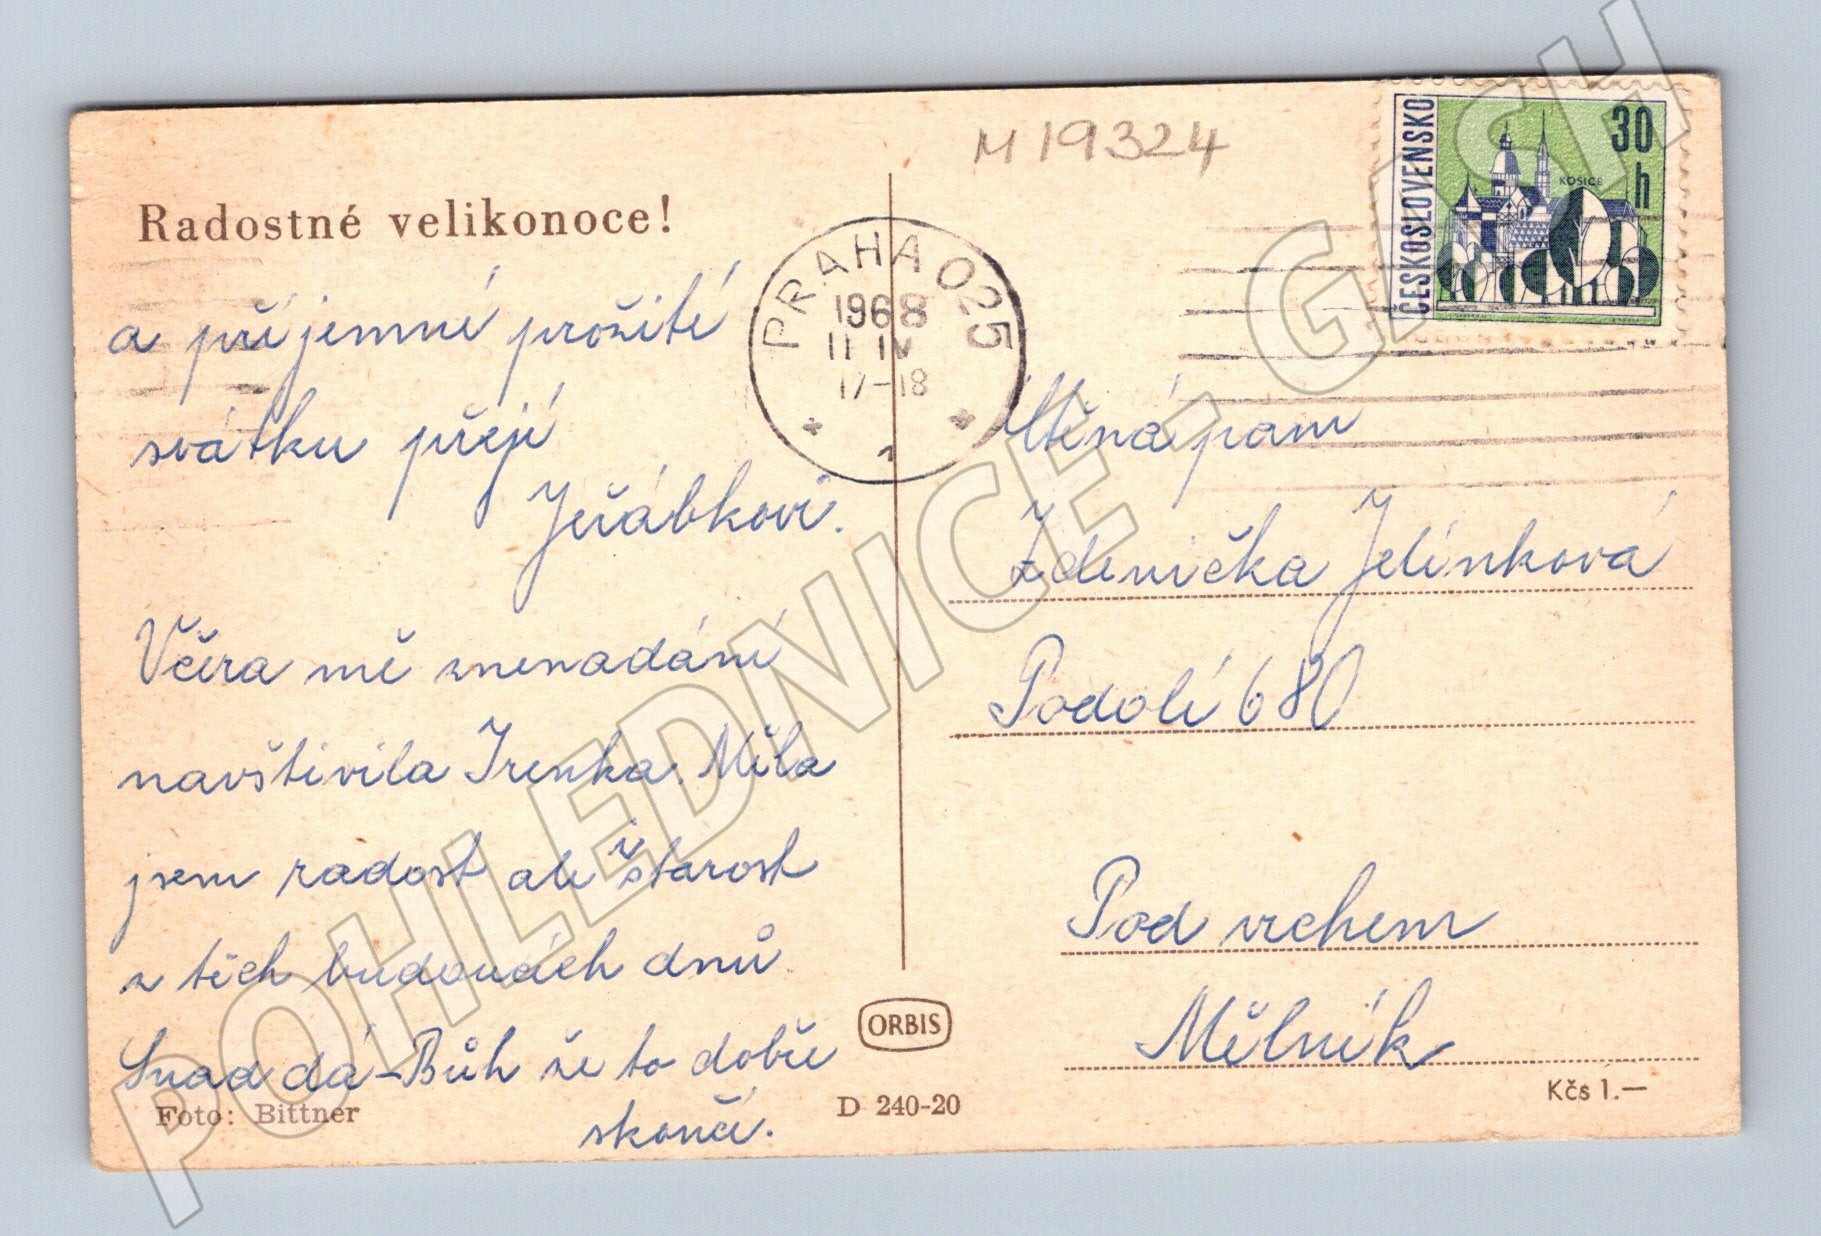 M 19324
ČESKOSLOVENSKO
30
h
KOŠICE
PRAHA 025
1968
11 IV
17-18
1
Radostné velikonoce!
a příjemné prožití
svátku přejí
Jeřábkovi.
Včera mě znenadání
navštívila Irenka. Měla
jsem radost ale i starost
z těch budoucích dnů.
Snad dá-Bůh že to dobře
skončí.
Foto: Bittner
D 240-20
ORBIS
Vážená paní
Zdenička Jelínková
Podolí 680
Pod vrchem
Mělník
Kčs 1.—
POHLEDNICE - GASH